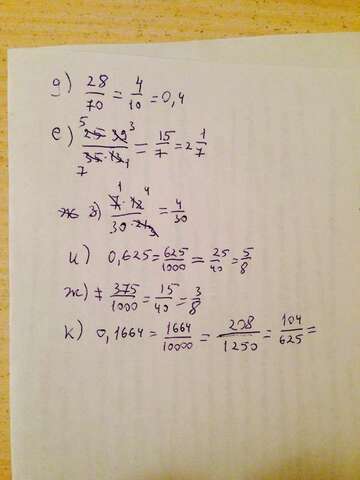 д) 28/70 = 4/10 = 0,4
е) 25·39/35·13 = 15/7 = 2 1/7
з) 7·12/30·21 = 4/30
и) 0,625 = 625/1000 = 25/40 = 5/8
ж) 375/1000 = 15/40 = 3/8
к) 0,1664 = 1664/10000 = 208/1250 = 104/625 =